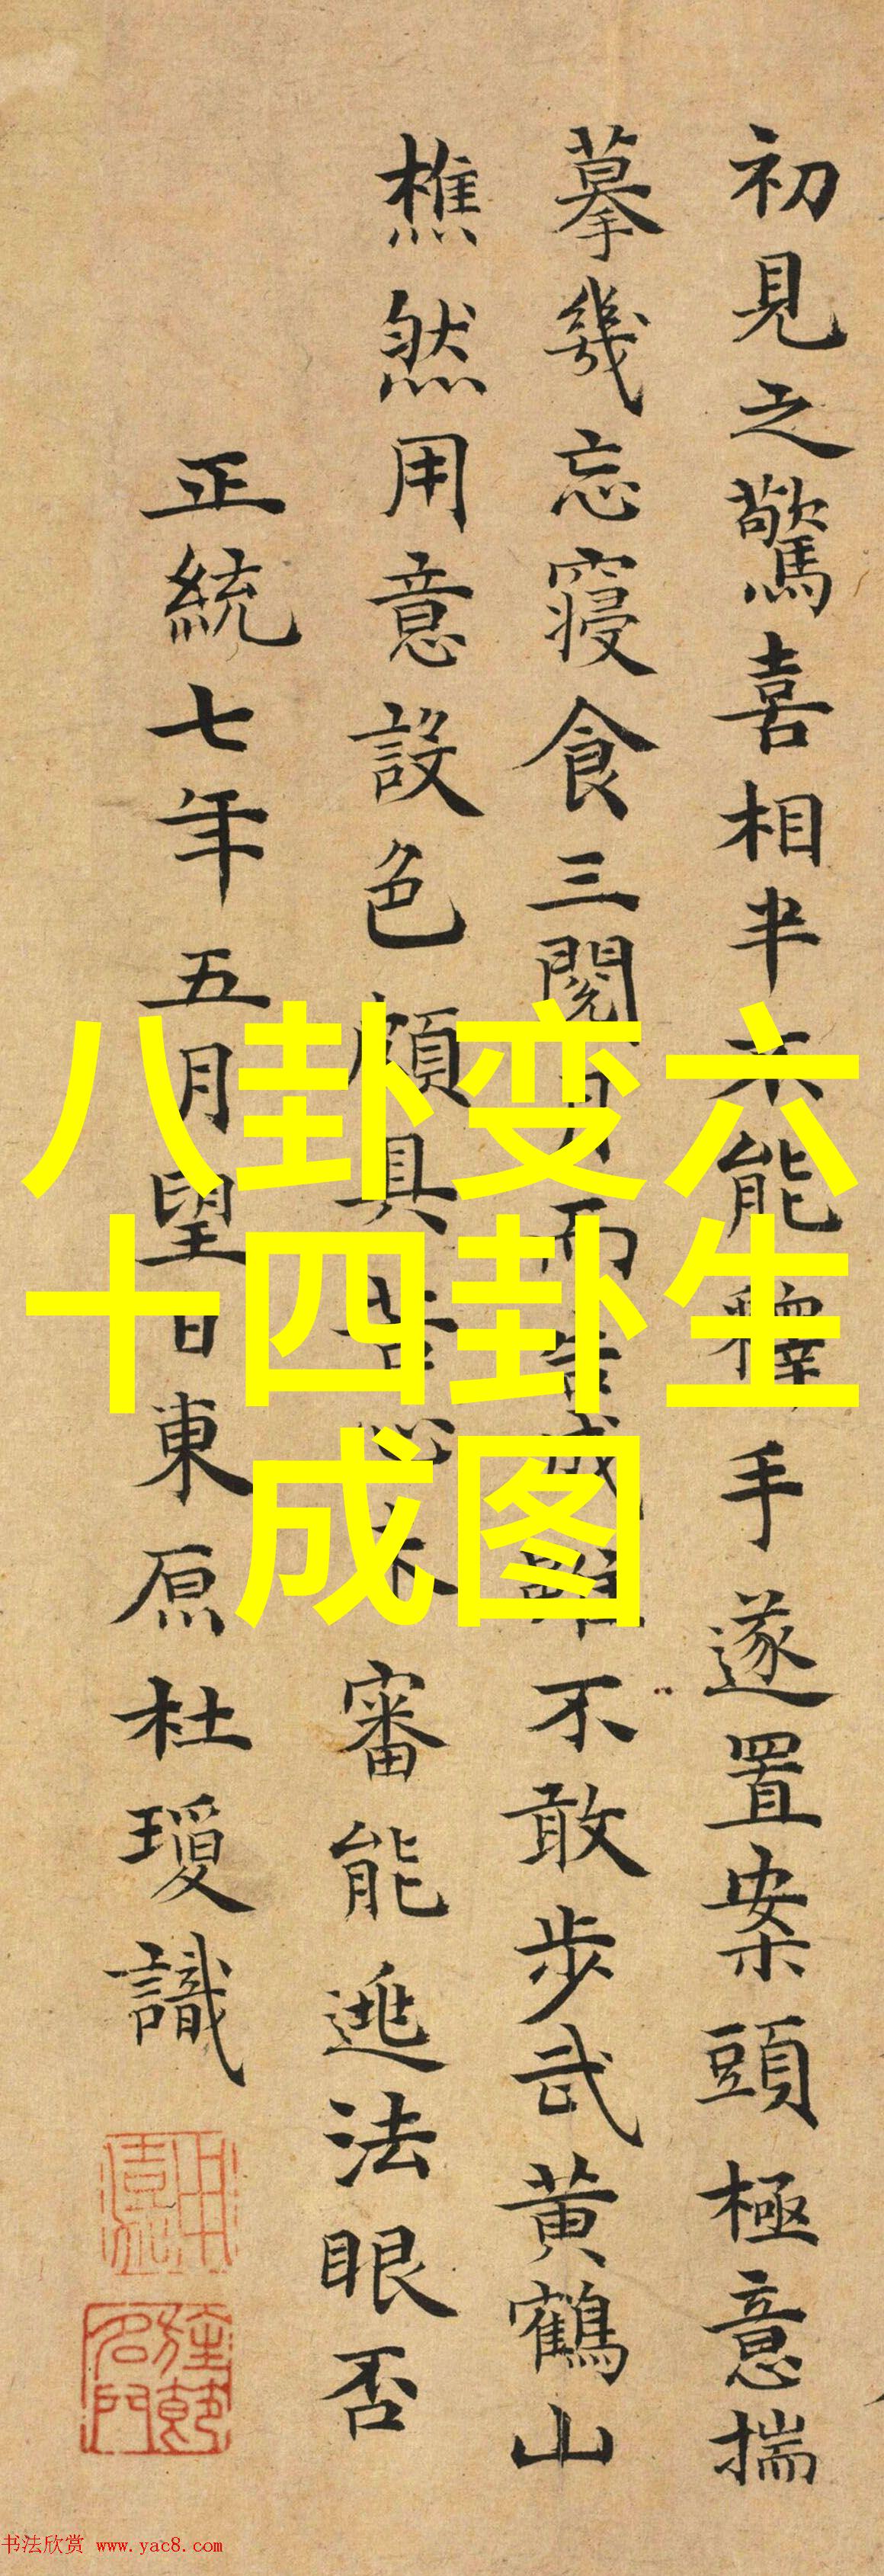 初見之驚喜相半不能釋手遂置案頭極意揣
摹幾忘寢食三閱月而告成雖不敢步武黃鶴山
樵然用意設色頗具苦心未審能逃法眼否
正統七年五月望日東原杜瓊識
八卦变六
十四卦生
成图
书法欣赏 www.yac8.com